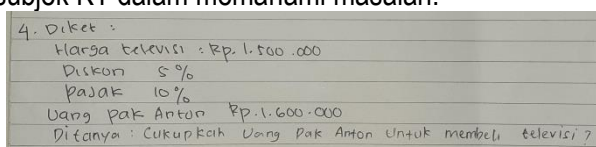 Subjek RT dalam memahami masalah.
4. Diket :
Harga televisi : Rp. 1.500.000
Diskon 5%
Pajak 10%
Uang Pak Anton Rp. 1.600.000
Ditanya : Cukupkah Uang Pak Anton Untuk membeli televisi ?